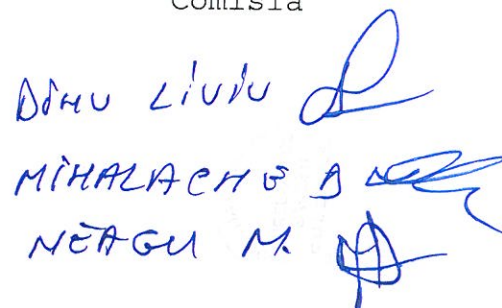 Comisia
DINU LIVIU
MIHALACHE B
NEAGU M.